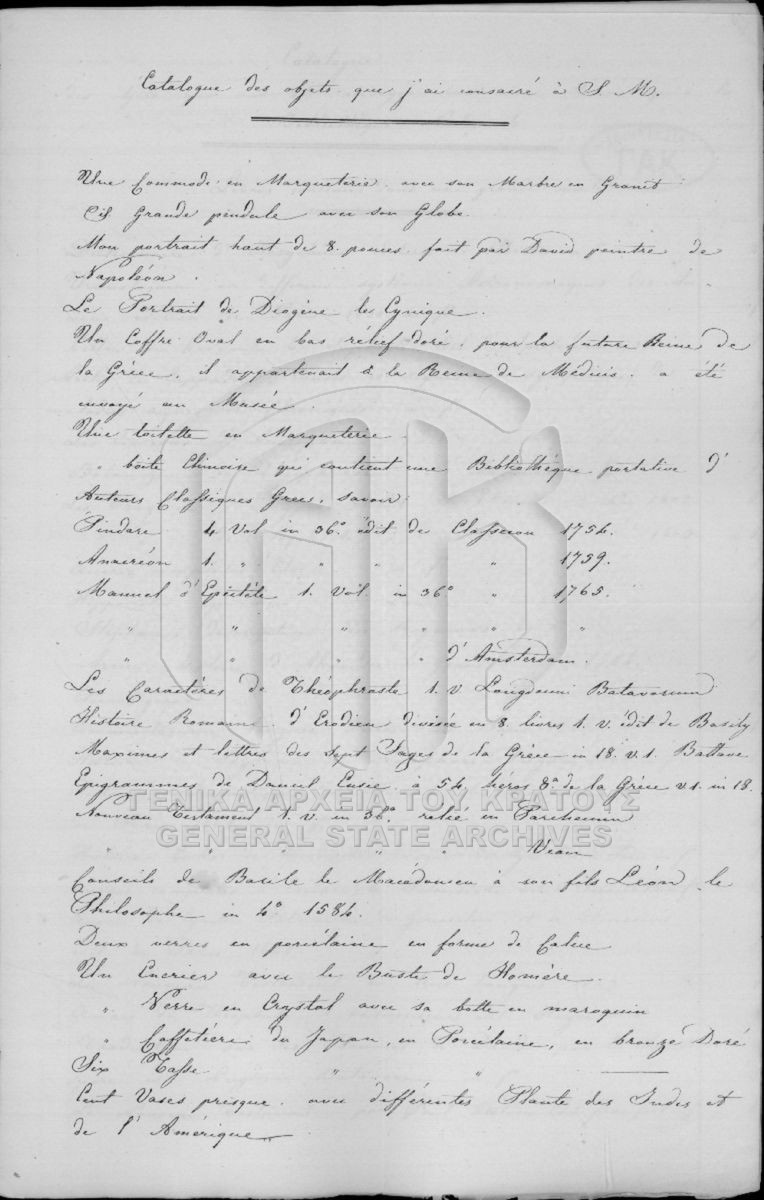 Catalogue des objets que j'ai consacré à S M.
Une Commode en Marqueterie avec son Marbre en Granit
Grande pendule avec son Globe.
Mon portrait haut de 8. pouces fait par David peintre de
Napoléon.
Le Portrait de Diogène le Cynique.
Un Coffre Oval en bas rélief doré, pour la future Reine de
la Grèce, il appartenait à la Reine de Médicis. a été
envoyé au Musée.
Une toilette en Marqueterie.
" boite Chinoise qui contient une Bibliothéque portative d'
Auteurs Classiques Grecs, savoir:
Pindare 4 Vol in 36.° édit de 1754.
Anacréon 1. " " " " 1759.
Manuel d'Epictéte 1. Vol. in 36° " 1765.
" " " " "
" " " " d'Amsterdam.
Les Caractères de Théophraste 1. v Lougdouni Batavorum
Histoire Romaine d'Erodien divisée en 8. livres 1. v. édit de Basily
Maximes et lettres des Sept Sages de la Grèce in 18. v. 1. Battave
Epigrammes de Daniel à 54 héros de la Grèce v 1. in 18.
Nouveau Testament 1. v. in 36.° relié en Parchemin
" " " " " Veau
Conseils de Basile le Macédonien à son fils Léon le
Philosophe in 4° 1584.
Deux verres en porcélaine en forme de Calice
Un Encrier avec le Buste de Homère.
" Verre en Crystal avec sa botte en maroquin
" Caffetière du Japan, en Porcélaine, en bronze Doré
Six Tasse " "
Cent Vases presque avec différentes Plante des Indes et
de l'Amérique
ΓΕΝΙΚΑ ΑΡΧΕΙΑ ΤΟΥ ΚΡΑΤΟΥΣ
GENERAL STATE ARCHIVES
ΓΑΚ